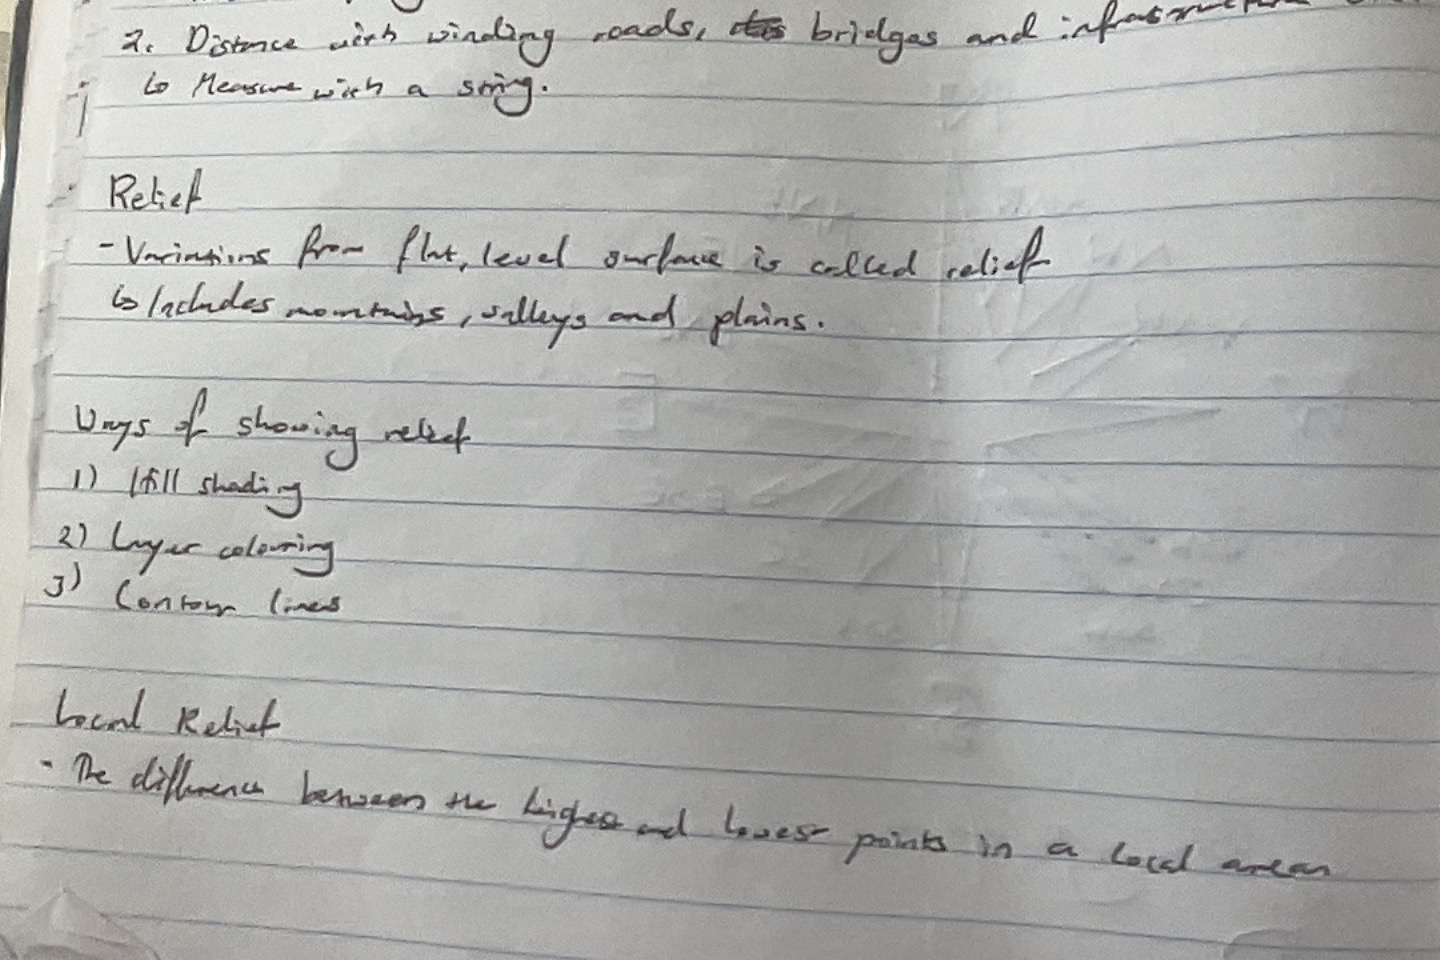 2. Distance with winding roads, bridges and infrastructure
↳ Measure with a string.
Relief
- Variations from flat, level surface is called relief
↳ Includes mountains, valleys and plains.
Ways of showing relief
1) Hill shading
2) Layer colouring
3) Contour lines
Local Relief
- The difference between the highest and lowest points in a local area